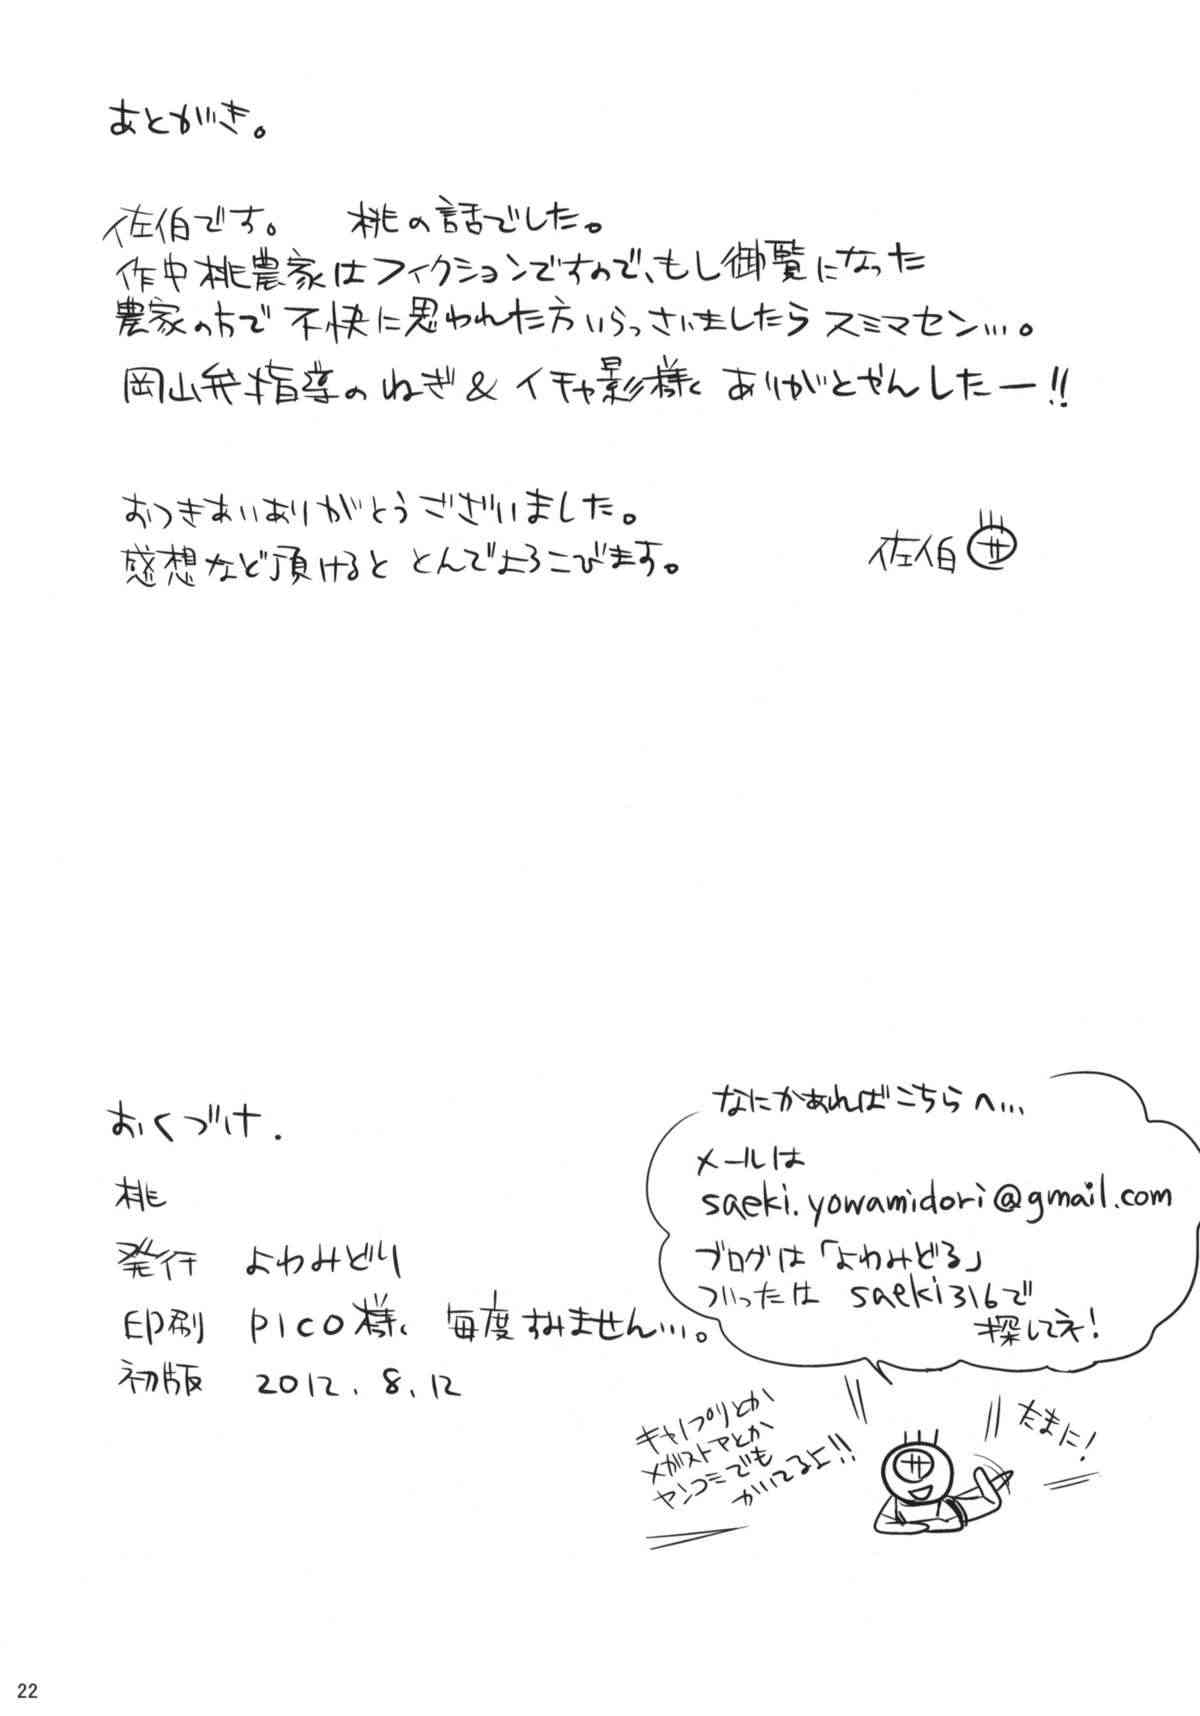 あとがき。
佐伯です。 桃の話でした。
作中桃農家はフィクションですので、もし御覧になった
農家の方で不快に思われた方いらっさいましたらスミマセン…。
岡山弁指導のねぎ&イチャ影様〱 ありがとやんしたー!!
おつきあいありがとうございました。
感想など頂けると とんでよろこびます。
佐伯 サ
おくづけ.
桃
発行 よわみどり
印刷 PICO様〱 毎度すみません…。
初版 2012.8.12
なにかあればこちらへ…
メールは
saeki.yowamidori@gmail.com
ブログは「よわみどる」
ついったは saeki316で
探してネ!
キャノプリとか
メガストアとか
ヤンコミでも
かいてるよ!!
たまに!
サ
22